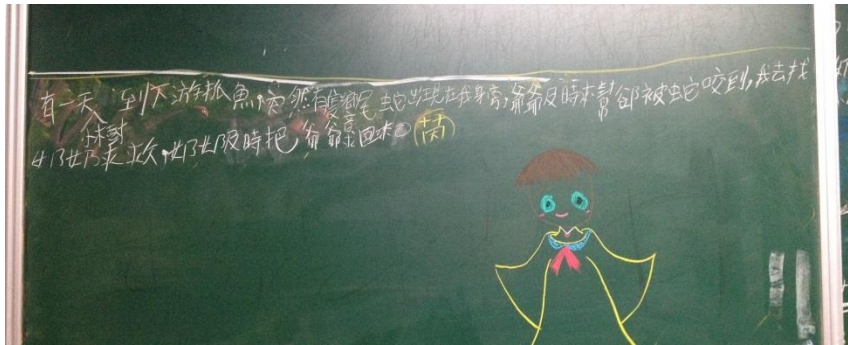 有一天,到下游抓魚,突然有隻響尾蛇出現在我身旁,爺爺及時來幫卻被蛇咬到,我去找
小樹
奶奶求救,奶奶及時把爺爺救回來。(芮)